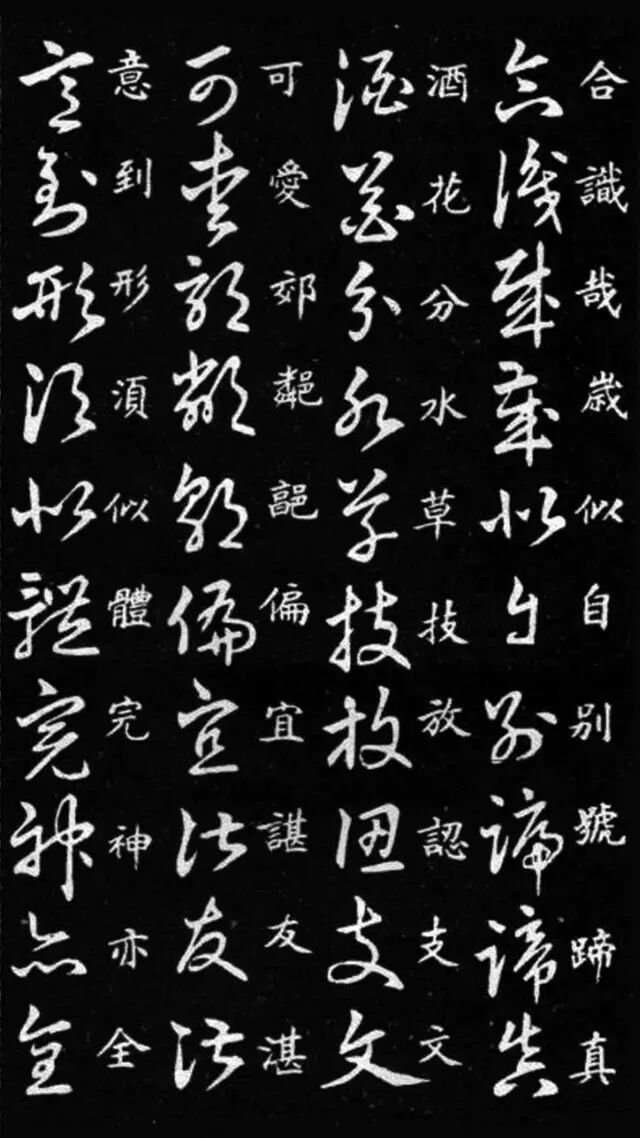 合識哉歲似自別號蹄真
酒花分水草技放認支文
可愛郊偏宜諶友湛
意到形須似體完神亦全